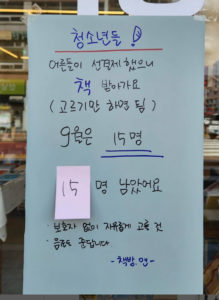 청소년들!
어른들이 선결제 했으니
책 받아가요
(고르기만 하면 됨)
9월은 15명
15 명 남았어요
· 보호자 없이 자유롭게 고를 것
· 음료도 준답니다.
- 책방.연 -